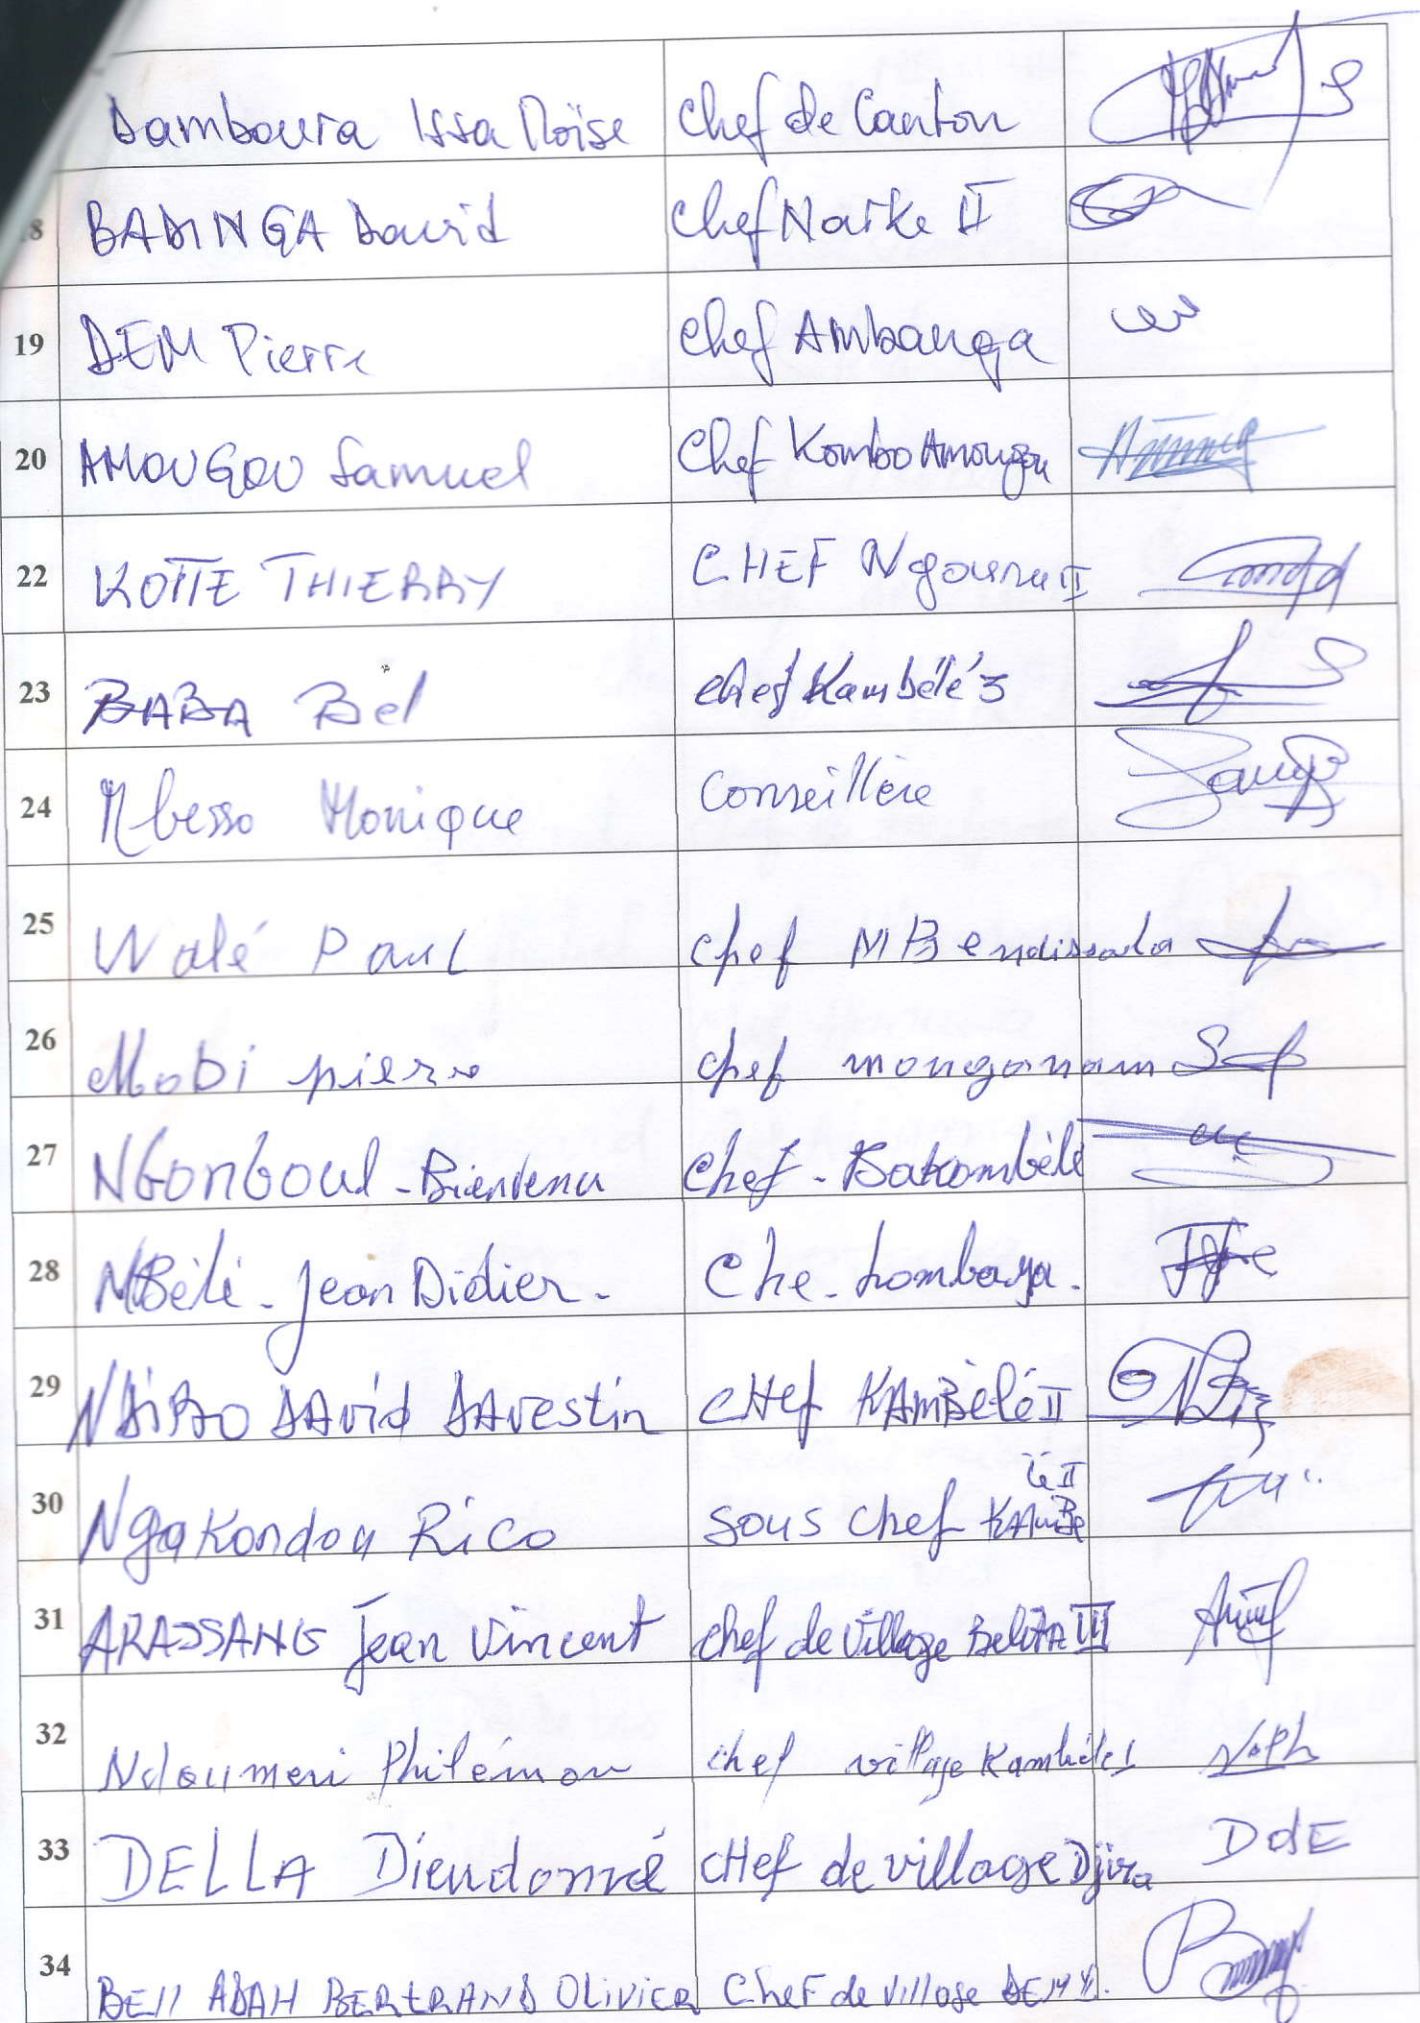 Damboura Issa Moïse Chef de Canton
8 BADINGA David Chef Narke II
19 DEM Pierre Chef Ambanga
20 AMOUGOU Samuel Chef Kombo Amougou
22 KOTTE THIERRY CHEF Ngoura II
23 BABA Bel chef Kambélé 3
24 Mbesso Monique Conseillère
25 Walé Paul chef MBendissola
26 Mobi pierre chef mongonam
27 NGONGOUL - Bienvenu Chef - Bakombélé
28 MBélé - Jean Didier - Che - hombaya.
29 NDIBO DAVID DAvestin CHef KAMBélé II
30 Ngakondou Rico sous chef KAMBe lé II
31 ARASSANG Jean Vincent chef de village BelitA III
32 Ndoumeri Philémon chef village Kambélé I
33 DELLA Dieudonné CHef de village Djira DdE
34 BEll ADAH BERtRAND OliviER CheF de village